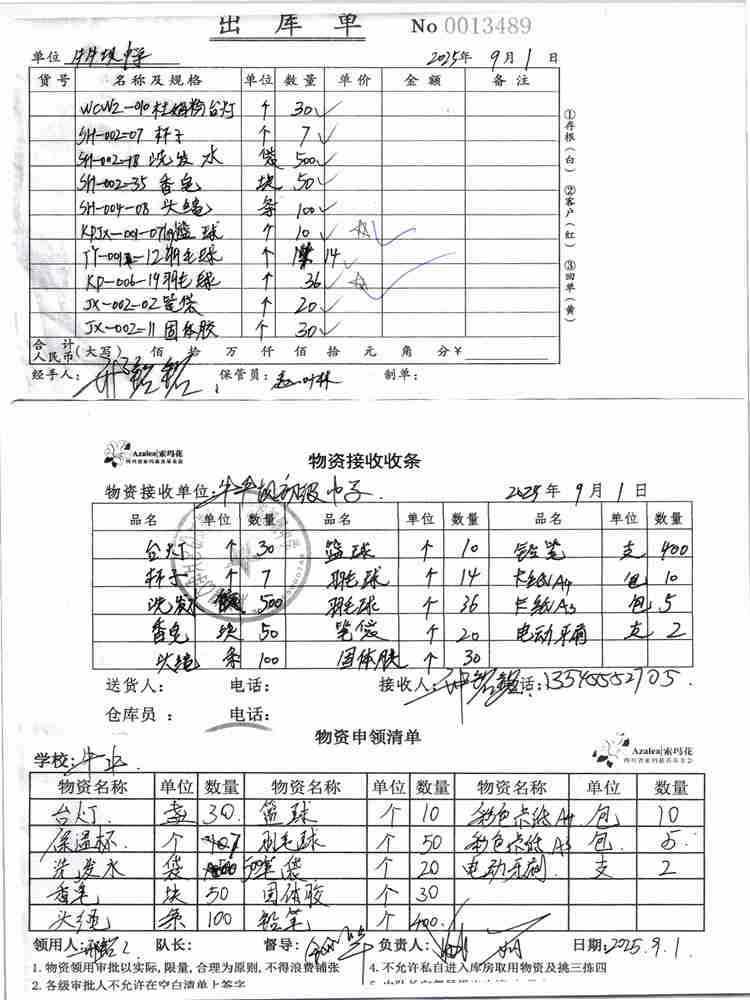 出 库 单 No 0013489
单位 2025年 9月 1 日
货号 名称及规格 单位 数量 单价 金额 备注
WCW2-010 台灯 个 30
SH-002-07 杯子 个 7
SH-002-18 洗发水 袋 500
SH-002-35 香皂 块 50
SH-004-08 头绳 条 100
篮球 个 10
羽毛球 个 14
KP-006-19 羽毛球 个 36
JX-002-02 笔袋 个 20
JX-002-11 固体胶 个 30
合计人民币(大写) 佰 拾 万 仟 佰 拾 元 角 分 ¥
经手人: 保管员: 制单:
①存根(白) ②客户(红) ③回单(黄)
Azalea|索玛花
物资接收收条
物资接收单位: 初级中学 2025年 9月 1日
品名 单位 数量 品名 单位 数量 品名 单位 数量
台灯 个 30 篮球 个 10 铅笔 支 400
杯子 个 7 羽毛球 个 14 卡纸A4 包 10
洗发水 500 羽毛球 个 36 卡纸A3 包 5
香皂 块 50 笔袋 个 20 电动牙刷 支 2
头绳 条 100 固体胶 个 30
送货人: 电话: 接收人: 电话: 13545552705
仓库员: 电话:
物资申领清单
Azalea|索玛花
学校:
物资名称 单位 数量 物资名称 单位 数量 物资名称 单位 数量
台灯 30 篮球 个 10 彩色卡纸A4 包 10
保温杯 个 7 羽毛球 个 50 彩色卡纸A3 包 5
洗发水 袋 500 笔袋 个 20 电动牙刷 支 2
香皂 块 50 固体胶 个 30
头绳 条 100 铅笔 个 400
领用人: 队长: 督导: 负责人: 日期: 2025.9.1.
1.物资领用审批以实际,限量,合理为原则,不得浪费铺张 4.不允许私自进入库房取用物资及挑三拣四
2.各级审批人不允许在空白清单上签字